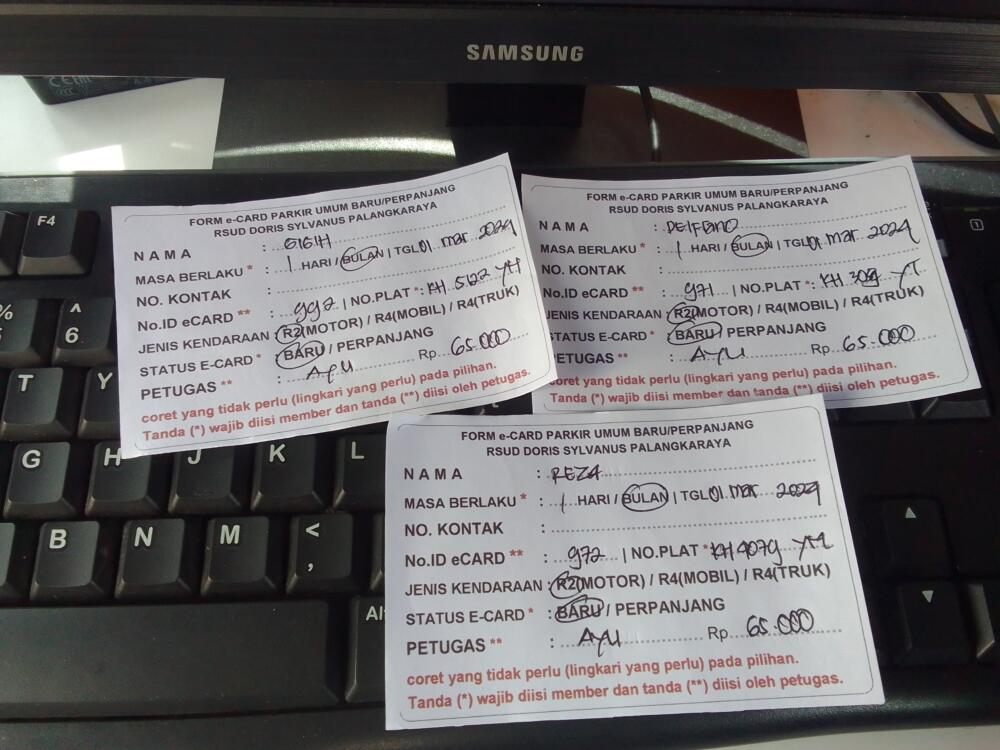 SAMSUNG
F4
%
^
6
T
Y
G
H
J
K
L
B
N
M
<
,
Alt
1
FORM e-CARD PARKIR UMUM BARU/PERPANJANG
RSUD DORIS SYLVANUS PALANGKARAYA
NAMA : GIGIH
MASA BERLAKU * : 1 HARI / BULAN | TGL 01 mar 2024
NO. KONTAK :
No.ID eCARD ** : 992 | NO.PLAT * : KH 5122 YH
JENIS KENDARAAN : R2(MOTOR) / R4(MOBIL) / R4(TRUK)
STATUS E-CARD * : BARU / PERPANJANG
PETUGAS ** : AYU Rp 65.000
coret yang tidak perlu (lingkari yang perlu) pada pilihan.
Tanda (*) wajib diisi member dan tanda (**) diisi oleh petugas.
FORM e-CARD PARKIR UMUM BARU/PERPANJANG
RSUD DORIS SYLVANUS PALANGKARAYA
NAMA :
MASA BERLAKU * : 1 HARI / BULAN | TGL 01 mar 2024
NO. KONTAK :
No.ID eCARD ** : 971 | NO.PLAT * : KH
JENIS KENDARAAN : R2(MOTOR) / R4(MOBIL) / R4(TRUK)
STATUS E-CARD * : BARU / PERPANJANG
PETUGAS ** : AYU Rp 65.000
coret yang tidak perlu (lingkari yang perlu) pada pilihan.
Tanda (*) wajib diisi member dan tanda (**) diisi oleh petugas.
FORM e-CARD PARKIR UMUM BARU/PERPANJANG
RSUD DORIS SYLVANUS PALANGKARAYA
NAMA : REZA
MASA BERLAKU * : 1 HARI / BULAN | TGL 01 mar 2024
NO. KONTAK :
No.ID eCARD ** : 972 | NO.PLAT * KH 4079
JENIS KENDARAAN : R2(MOTOR) / R4(MOBIL) / R4(TRUK)
STATUS E-CARD * : BARU / PERPANJANG
PETUGAS ** : AYU Rp 65.000
coret yang tidak perlu (lingkari yang perlu) pada pilihan.
Tanda (*) wajib diisi member dan tanda (**) diisi oleh petugas.